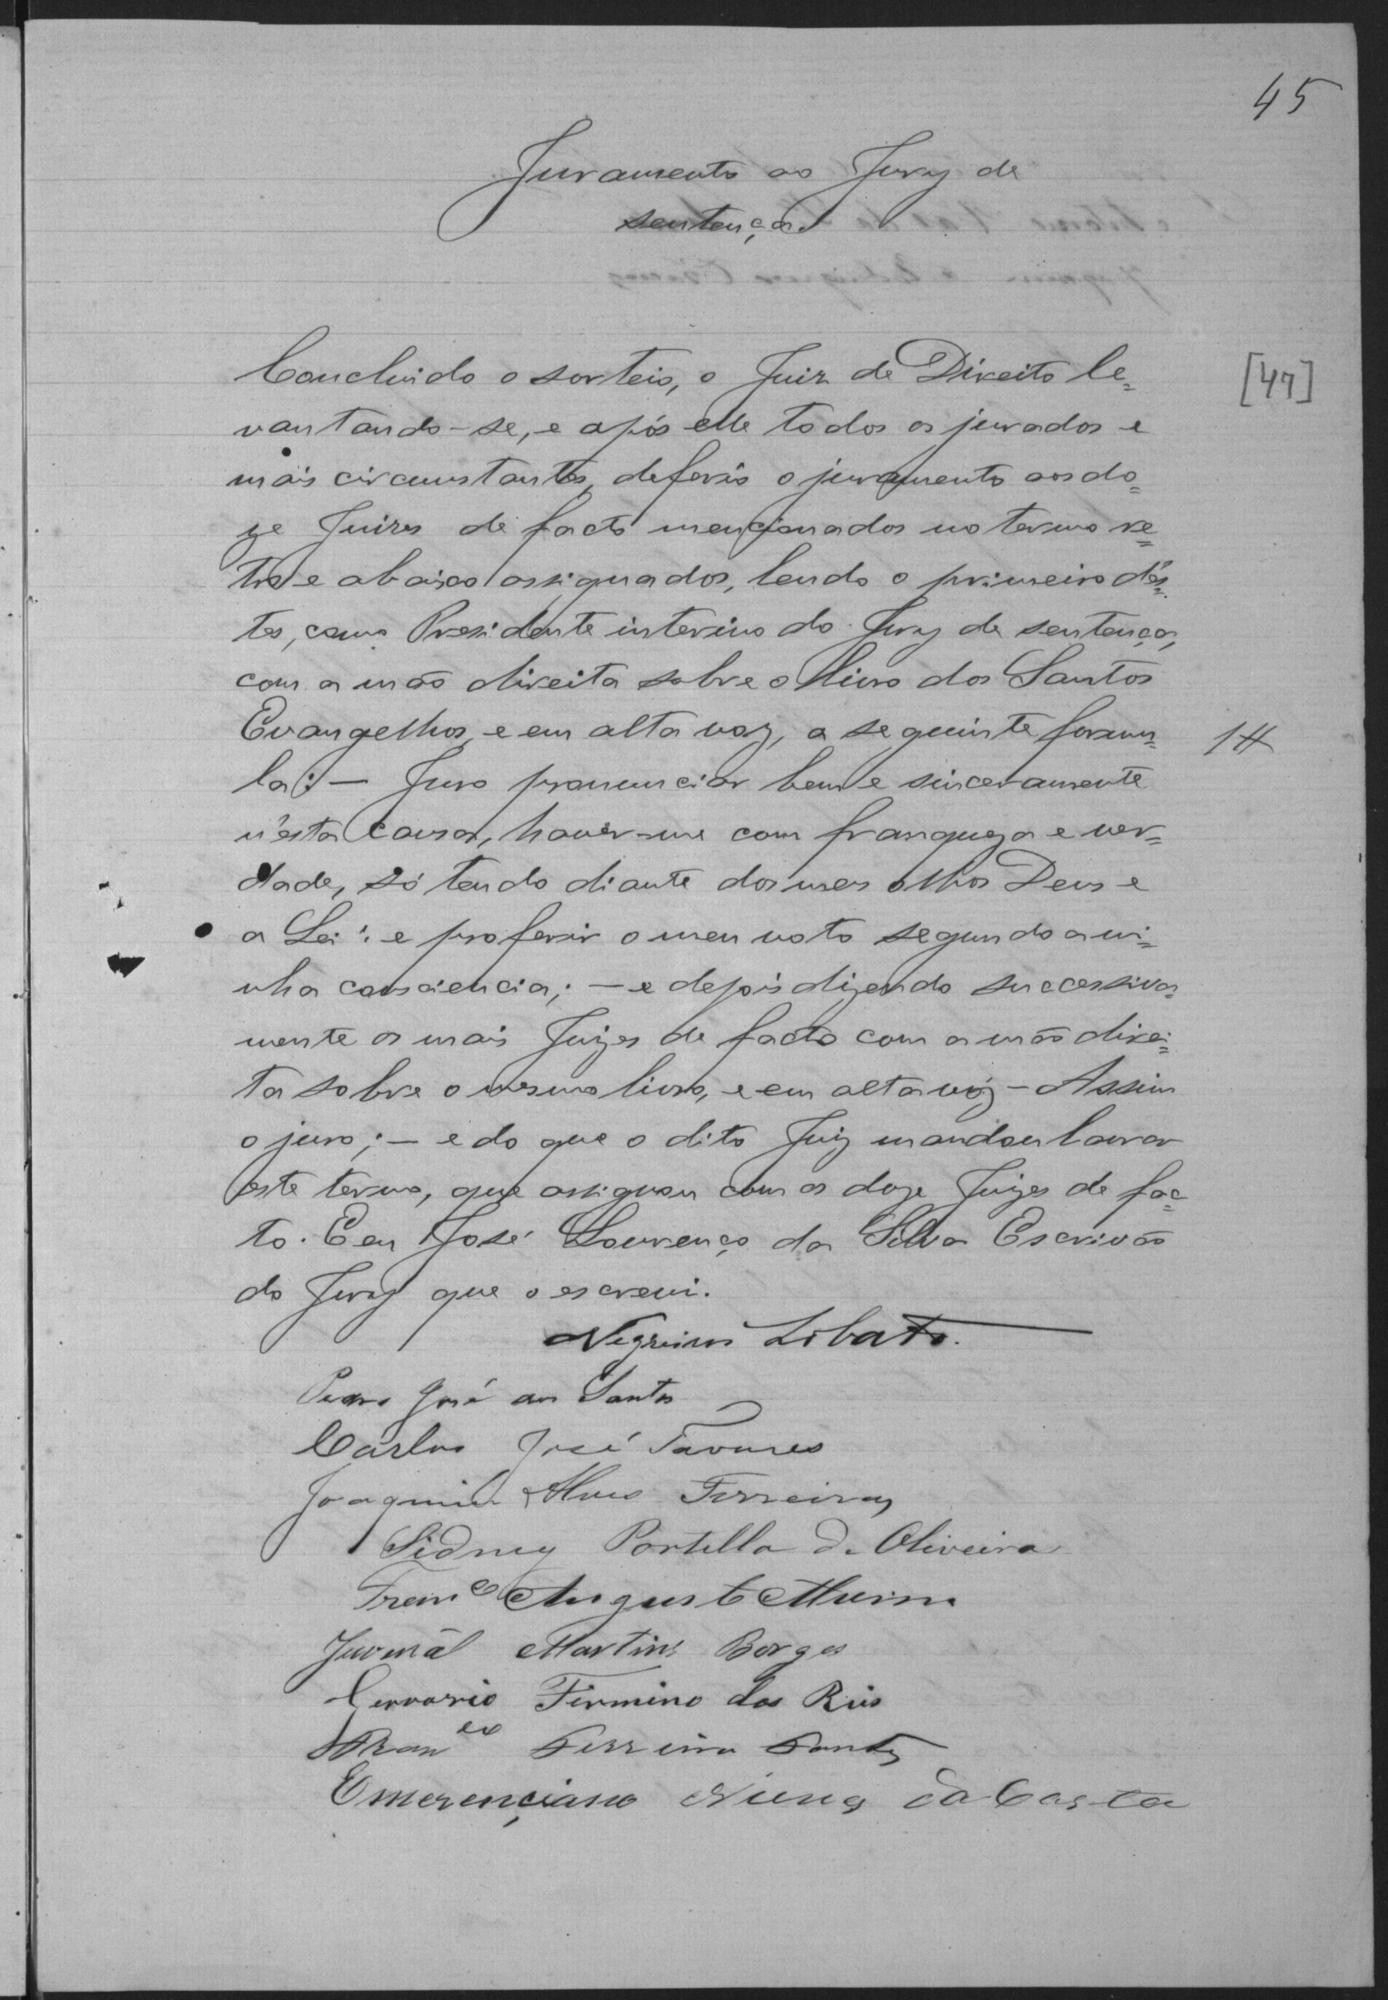 45
Juramento ao Jury de
sentença
Concluido o sorteio, o Juiz de Direito le=
vantando-se, e após elle todos os jurados e
mais circumstantes, deferio o juramento aos do=
ze Juizes de facto mencionados no termo re=
tro e abaixo assignados, lendo o primeiro dés=
tes, como Presidente interino do Jury de sentença,
com a mão direita sobre o livro dos Santos
Evangelhos, e em alta voz, a seguinte formu=
la: — Juro pronunciar bem e sinceramente
n'esta causa, haver-me com franqueza e ver=
dade, só tendo diante dos meus olhos Deus e
a Lei; e proferir o meu voto segundo a mi=
nha consciencia; — e depois dizendo successiva=
mente os mais Juizes de facto com a mão direi=
ta sobre o mesmo livro, e em alta vóz — Assim
o juro; — e do que o dito Juiz mandou lavrar
este termo, que assignou com os doze Juizes de fac=
to. E eu José Lourenço da Silva Escrivão
do Jury que o escrevi.
[47]
Negreiros Lobato.
Pedro José dos Santos
Carlos José Tavares
Joaquim Alves Ferreira
Sidney Portella de Oliveira
Franco Augusto
Juvenal Martins Borges
Gervasio Firmino dos Reis
Ferreira Santos
Emerenciano Nunes da Costa